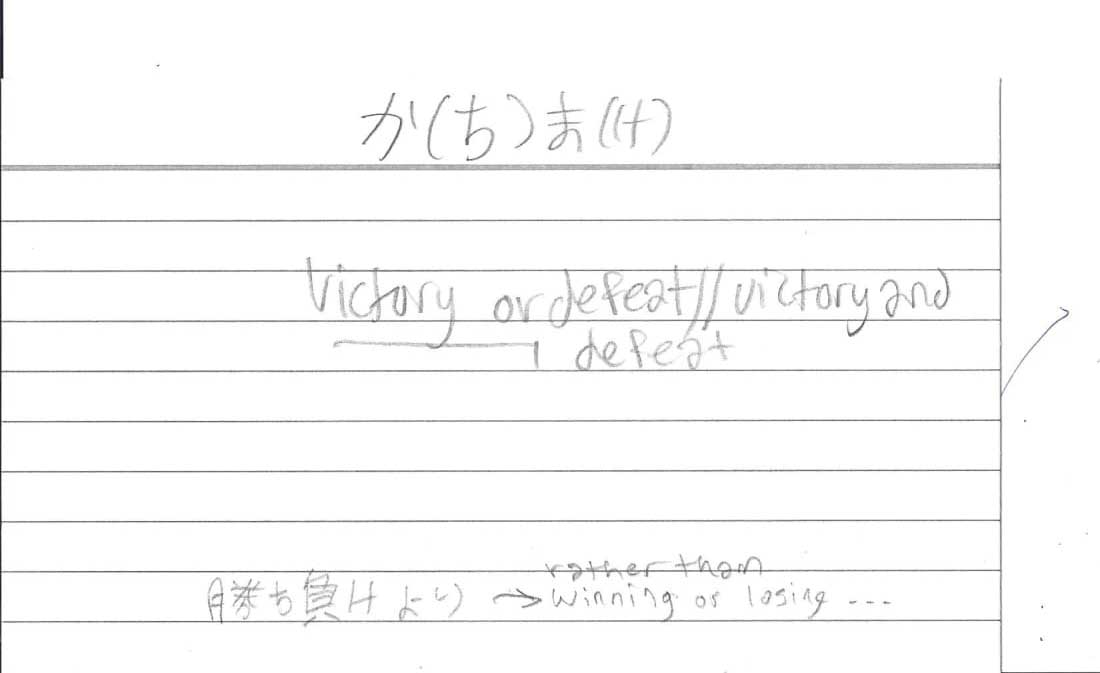 か(ち)ま(け)
Victory or defeat//victory and
defeat
rather than
勝ち負けより → winning or losing ...